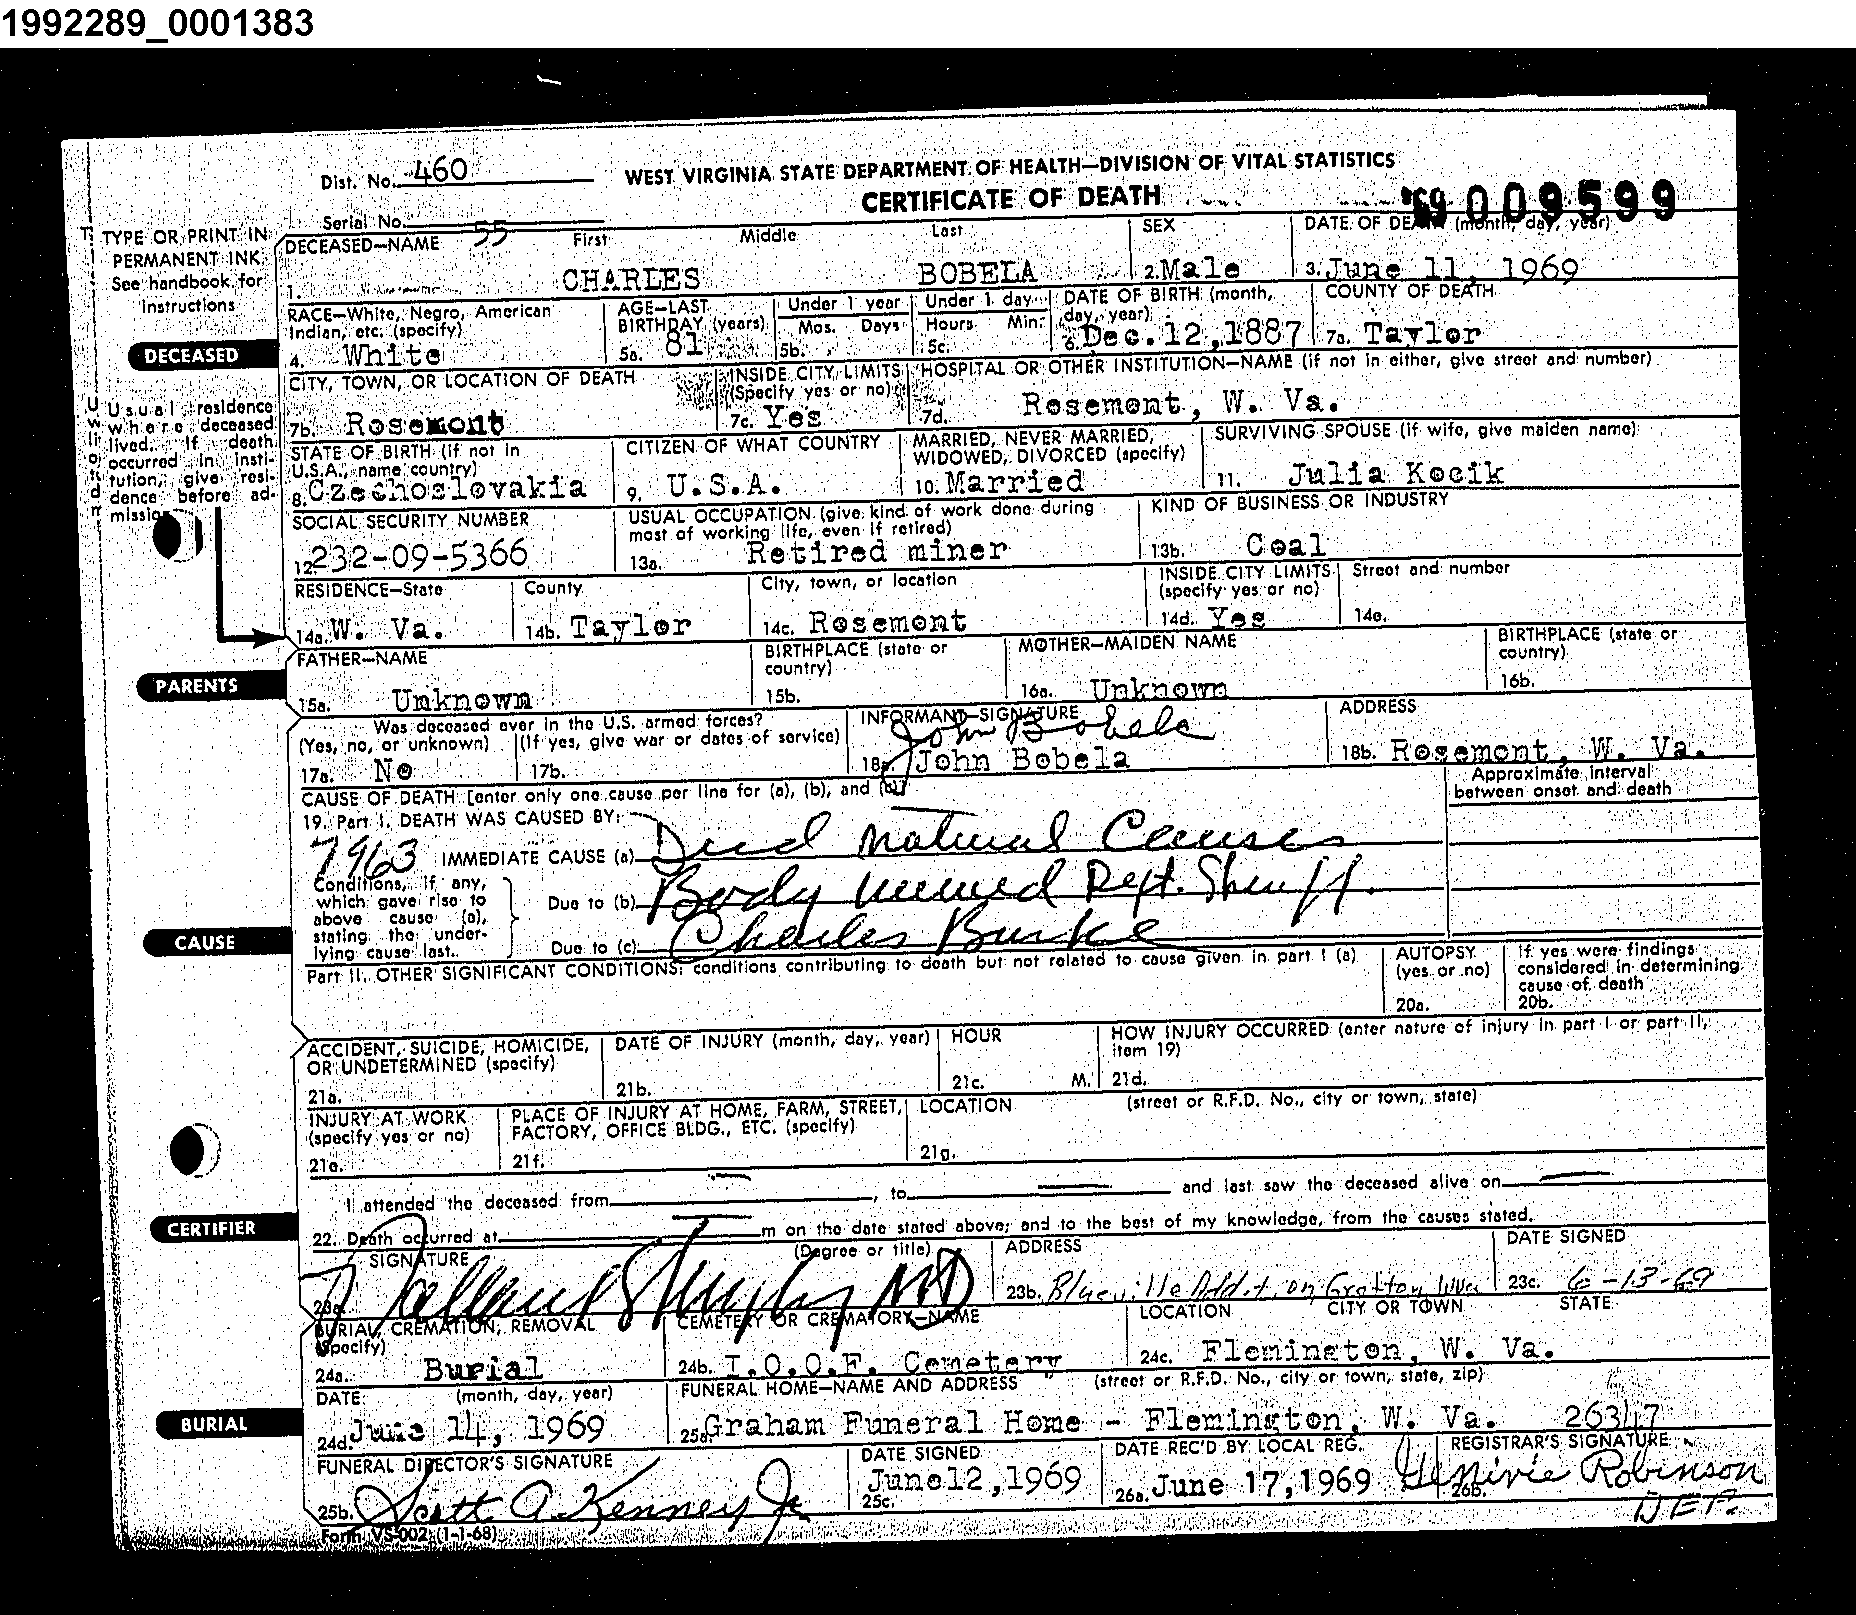 1992289_0001383
Dist. No. 460
WEST VIRGINIA STATE DEPARTMENT OF HEALTH—DIVISION OF VITAL STATISTICS
CERTIFICATE OF DEATH
'69 009599
Serial No. 55
TYPE OR PRINT IN
PERMANENT INK.
See handbook for
instructions
DECEASED—NAME First Middle Last
1. CHARLES BOBELA
SEX
2. Male
DATE OF DEATH (month, day, year)
3. June 11, 1969
RACE—White, Negro, American
Indian, etc. (specify)
4. White
AGE—LAST
BIRTHDAY (years)
5a. 81
Under 1 year
Mos. Days
5b.
Under 1 day
Hours Min.
5c.
DATE OF BIRTH (month,
day, year)
6. Dec. 12, 1887
COUNTY OF DEATH
7a. Taylor
DECEASED
CITY, TOWN, OR LOCATION OF DEATH
7b. Rosemont
INSIDE CITY LIMITS
(Specify yes or no)
7c. Yes
HOSPITAL OR OTHER INSTITUTION—NAME (if not in either, give street and number)
7d. Rosemont, W. Va.
Usual residence
where deceased
lived. If death
occurred in insti-
tution, give resi-
dence before ad-
mission
STATE OF BIRTH (if not in
U.S.A., name country)
8. Czechoslovakia
CITIZEN OF WHAT COUNTRY
9. U.S.A.
MARRIED, NEVER MARRIED,
WIDOWED, DIVORCED (specify)
10. Married
SURVIVING SPOUSE (if wife, give maiden name)
11. Julia Kocik
SOCIAL SECURITY NUMBER
12. 232-09-5366
USUAL OCCUPATION (give kind of work done during
most of working life, even if retired)
13a. Retired miner
KIND OF BUSINESS OR INDUSTRY
13b. Coal
RESIDENCE—State
14a. W. Va.
County
14b. Taylor
City, town, or location
14c. Rosemont
INSIDE CITY LIMITS
(specify yes or no)
14d. Yes
Street and number
14e.
PARENTS
FATHER—NAME
15a. Unknown
BIRTHPLACE (state or
country)
15b.
MOTHER—MAIDEN NAME
16a. Unknown
BIRTHPLACE (state or
country)
16b.
Was deceased ever in the U.S. armed forces?
(Yes, no, or unknown) (If yes, give war or dates of service)
17a. No
17b.
INFORMANT—SIGNATURE
John Bobela
18a. John Bobela
ADDRESS
18b. Rosemont, W. Va.
CAUSE OF DEATH [enter only one cause per line for (a), (b), and (c)]
Approximate interval
between onset and death
19. Part I. DEATH WAS CAUSED BY:
7963
IMMEDIATE CAUSE (a) Died natural Causes
Conditions, if any,
which gave rise to
above cause (a),
stating the under-
lying cause last.
Due to (b) Body viewed Dept. Sheriff.
Due to (c) Charles Burke
CAUSE
Part II. OTHER SIGNIFICANT CONDITIONS: conditions contributing to death but not related to cause given in part I (a)
AUTOPSY
(yes or no)
20a.
If yes were findings
considered in determining
cause of death
20b.
ACCIDENT, SUICIDE, HOMICIDE,
OR UNDETERMINED (specify)
21a.
DATE OF INJURY (month, day, year)
21b.
HOUR
21c. M.
HOW INJURY OCCURRED (enter nature of injury in part I or part II,
item 19)
21d.
INJURY AT WORK
(specify yes or no)
21e.
PLACE OF INJURY AT HOME, FARM, STREET,
FACTORY, OFFICE BLDG., ETC. (specify)
21f.
LOCATION (street or R.F.D. No., city or town, state)
21g.
I attended the deceased from , to and last saw the deceased alive on
CERTIFIER
22. Death occurred at m on the date stated above; and to the best of my knowledge, from the causes stated.
SIGNATURE (Degree or title)
23a. MD
ADDRESS
23b. Blueville Addition Grafton WVa
DATE SIGNED
23c. 6-13-69
BURIAL, CREMATION, REMOVAL
(Specify)
24a. Burial
CEMETERY OR CREMATORY—NAME
24b. I.O.O.F. Cemetery
LOCATION CITY OR TOWN STATE
24c. Flemington, W. Va.
BURIAL
DATE (month, day, year)
24d. June 14, 1969
FUNERAL HOME—NAME AND ADDRESS (street or R.F.D. No., city or town, state, zip)
25a. Graham Funeral Home - Flemington, W. Va. 26347
FUNERAL DIRECTOR'S SIGNATURE
25b. Scott A. Kenney Jr
DATE SIGNED
June 12, 1969
25c.
DATE REC'D BY LOCAL REG.
26a. June 17, 1969
REGISTRAR'S SIGNATURE
26b. Robinson
DEP.
Form VS-002 (1-1-68)